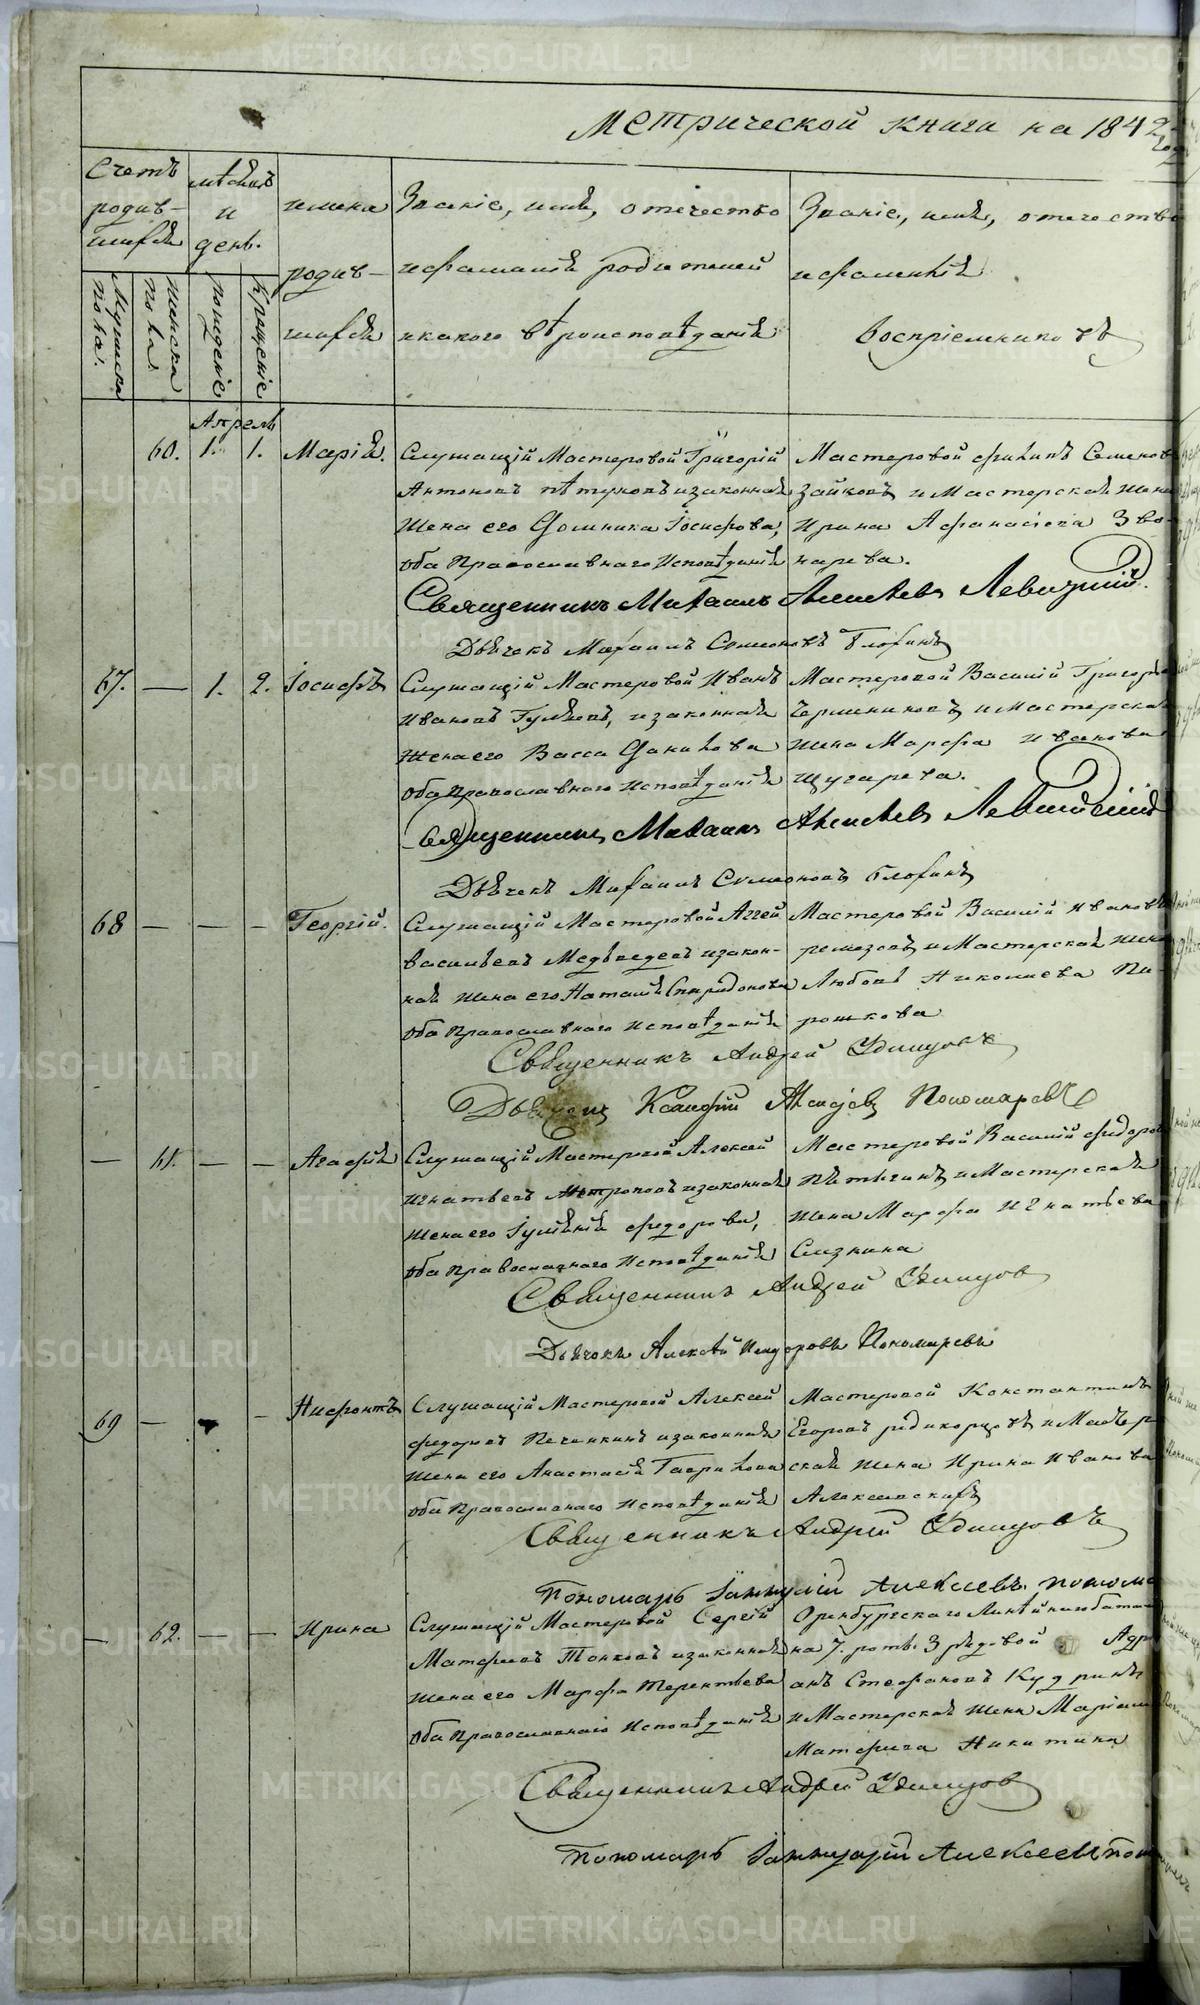 Метрической книги на 1842 годъ
Счетъ родив-шихся
мѣсяцъ и день.
имена родив-шихся
Званіе, имя, отечество
и фамилія родителей
и какого вѣроисповѣданія
Званіе, имя, отечество
и фамилія
воспріемниковъ
Мужеска пола.
Женска пола.
рожденіе
крещеніе
Апрель
60. 1. 1. Марія.
Служащій Мастеровой Григорій
Антоновъ Пѣтуховъ и законная
жена его Домника Іосифова,
оба Православнаго Исповѣданія
Мастеровой Филипъ Семенов
Зайковъ и Мастерская жена
Ирина Афанасіева Зво-
нарева.
Священникъ Михаилъ Алексѣевъ Левицкій.
Дьячекъ Михаилъ Симеоновъ Блохинъ
67. — 1. 2. Іосифъ
Служащій Мастеровой Иванъ
Ивановъ Гуляевъ, и законная
жена его Васса Данилова
оба Православнаго Исповѣданія
Мастеровой Василій Григорь
и Мастерская
жена Марфа Иванова
Щугарева.
Священникъ Михаилъ Алексѣевъ Левицкій
Дьячекъ Михаилъ Симеоновъ Блохинъ
68 — — — Георгій.
Служащій Мастеровой Аггей
Васильевъ Медвѣдевъ и закон-
ная жена его Наталія Спиридонова
оба Православнаго Исповѣданія
Мастеровой Василій Ивановъ
Ремезовъ и Мастерская жена
Любовь Николаева Па-
рошкова
Священникъ Андрей Удинцовъ
Дьячекъ Пономаревъ
— 61. — — Агафія
Служащій Мастеровой Алексей
Игнатьевъ Митроповъ и законная
жена его Іуліанія Федорова,
оба Православнаго Исповѣданія
Мастеровой Василій Федоров
и Мастерская
жена Марфа Игнатьева
Слизнина
Священникъ Андрей Удинцов
Дьячокъ Алексѣй Пономаревъ
69 — — Нифонтъ
Служащій Мастеровой Алексей
Федоровъ Печенкинъ и законная
жена его Анастасія Гаврилова
оба Православнаго Исповѣданія
Мастеровой Константинъ
Егоровъ Рѣдикорцовъ и Мастер-
ская жена Ирина Иванова
Алексѣевскихъ
Священникъ Андрей Удинцовъ
Пономарь Іаннуарій Алексеевъ Понома
— 62. — — Ирина
Служащій Мастеровой Сергій
Матфиевъ Тонковъ и законная
жена его Марфа Терентьева
оба Православнаго Исповѣданія
Оренбургскаго Линѣйнаго батал
на 7. роты 3 рядовой Адрі
анъ Стефановъ Кудринъ
и Мастерская жена Маріам
Матфиева Никитина
Священникъ Андрей Удинцов
Пономарь Іаннуарій Алексеевъ Пон